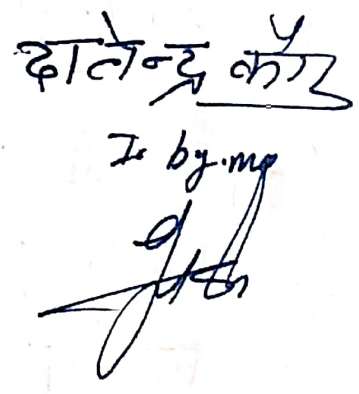 दालेन्द्र कौर
I. by. me